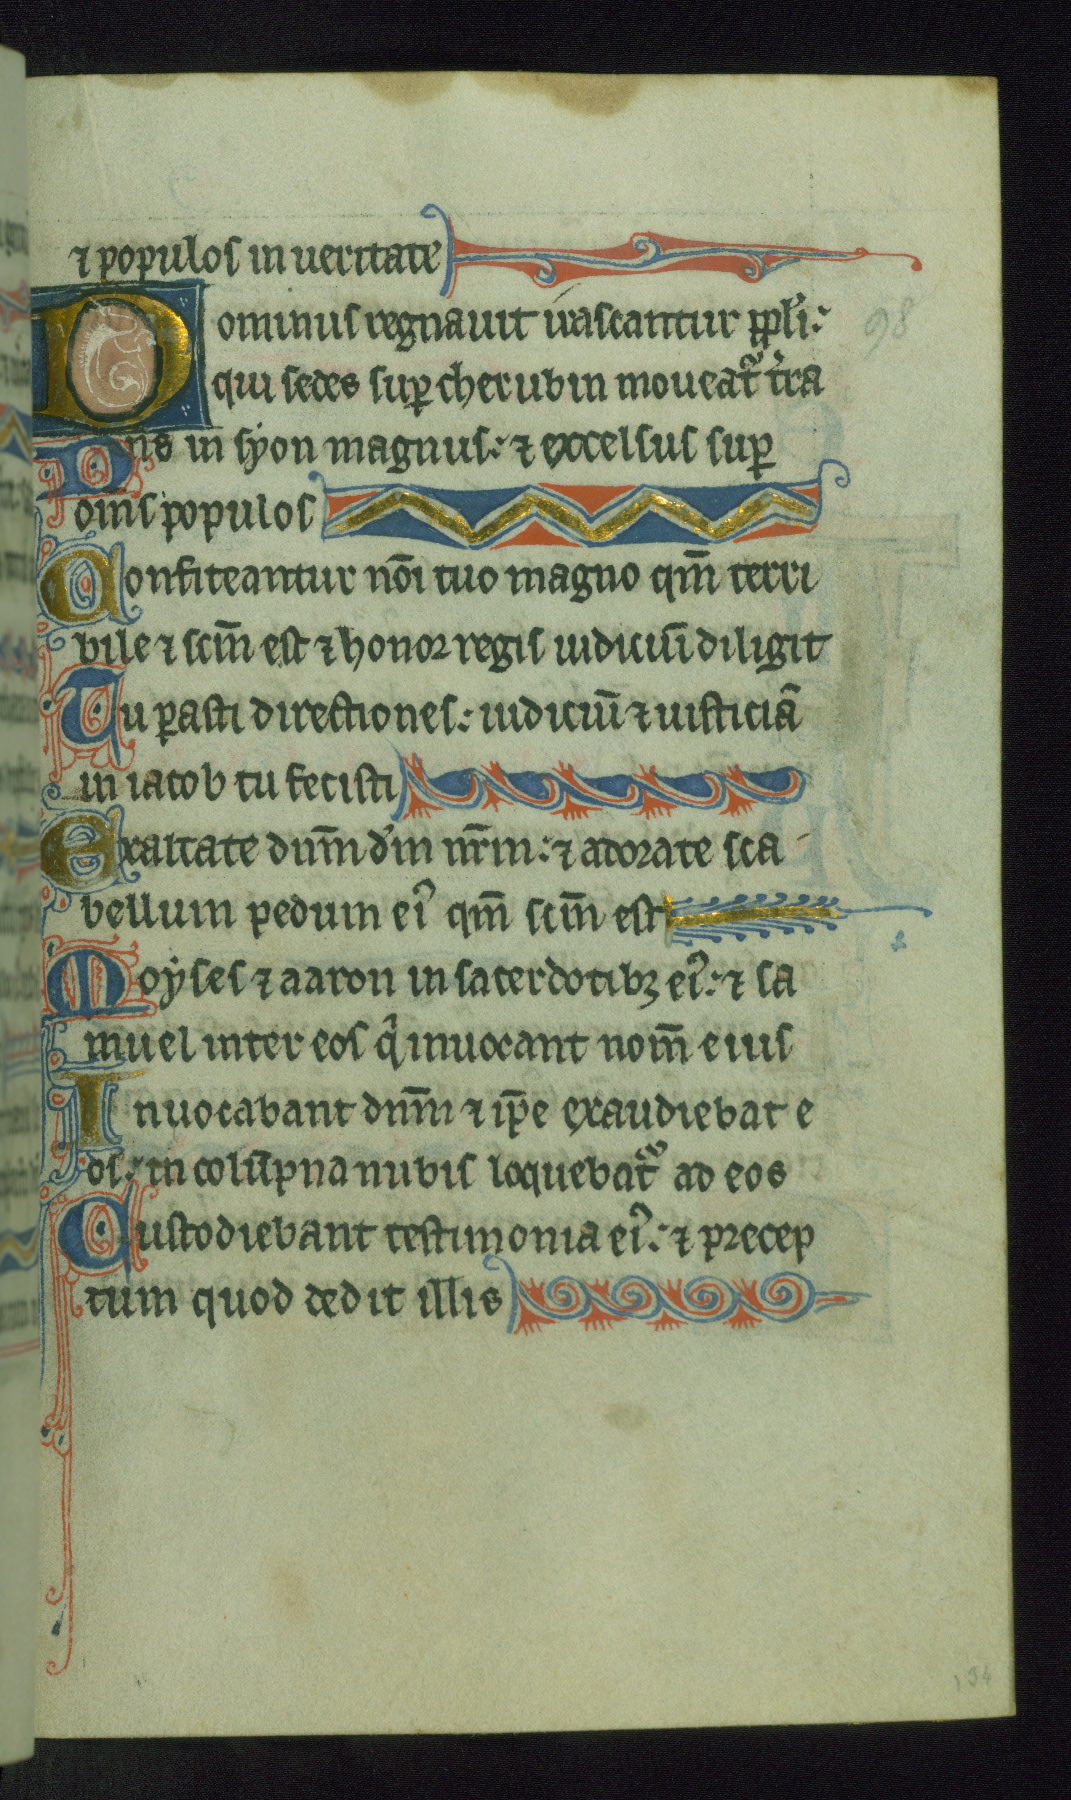 ⁊ populos in ueritate
Dominus regnauit irascantur ppli:
98
qui sedes sup cherubin moueat᷑ t̾ra
Dn̄s in syon magnus: ⁊ excelsus sup
om̄s populos
Confiteantur nōi tuo magno qm̄ terri
bile ⁊ scm̄ est ⁊ honor regis iudiciū diligit
Tu ꝑasti directiones: iudiciū ⁊ iusticiā
in iacob tu fecisti
Exaltate dnm̄ dm̄ nr̄m: ⁊ adorate sca
bellum pedum ei᷒ qm̄ scm̄ est
Moyses ⁊ aaron in sacerdotibꝫ ei᷒: ⁊ sa
muel inter eos qͥ inuocant nom̄ eius
Inuocabant dnm̄ ⁊ ip̄e exaudiebat e
os: in colūpna nubis loquebat᷑ ad eos
Custodiebant testimonia ei᷒: ⁊ precep
tum quod dedit illis
134